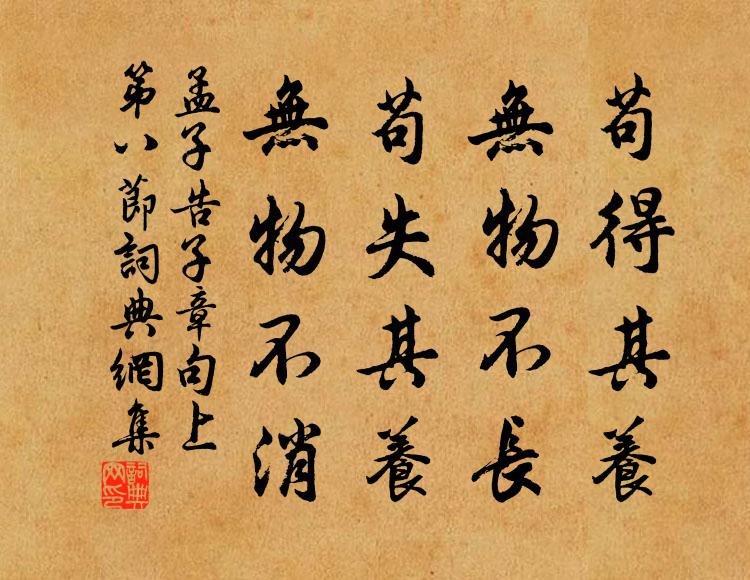 苟得其養
無物不長
苟失其養
無物不消
孟子告子章句上
第八節詞典網集
詞典
网印